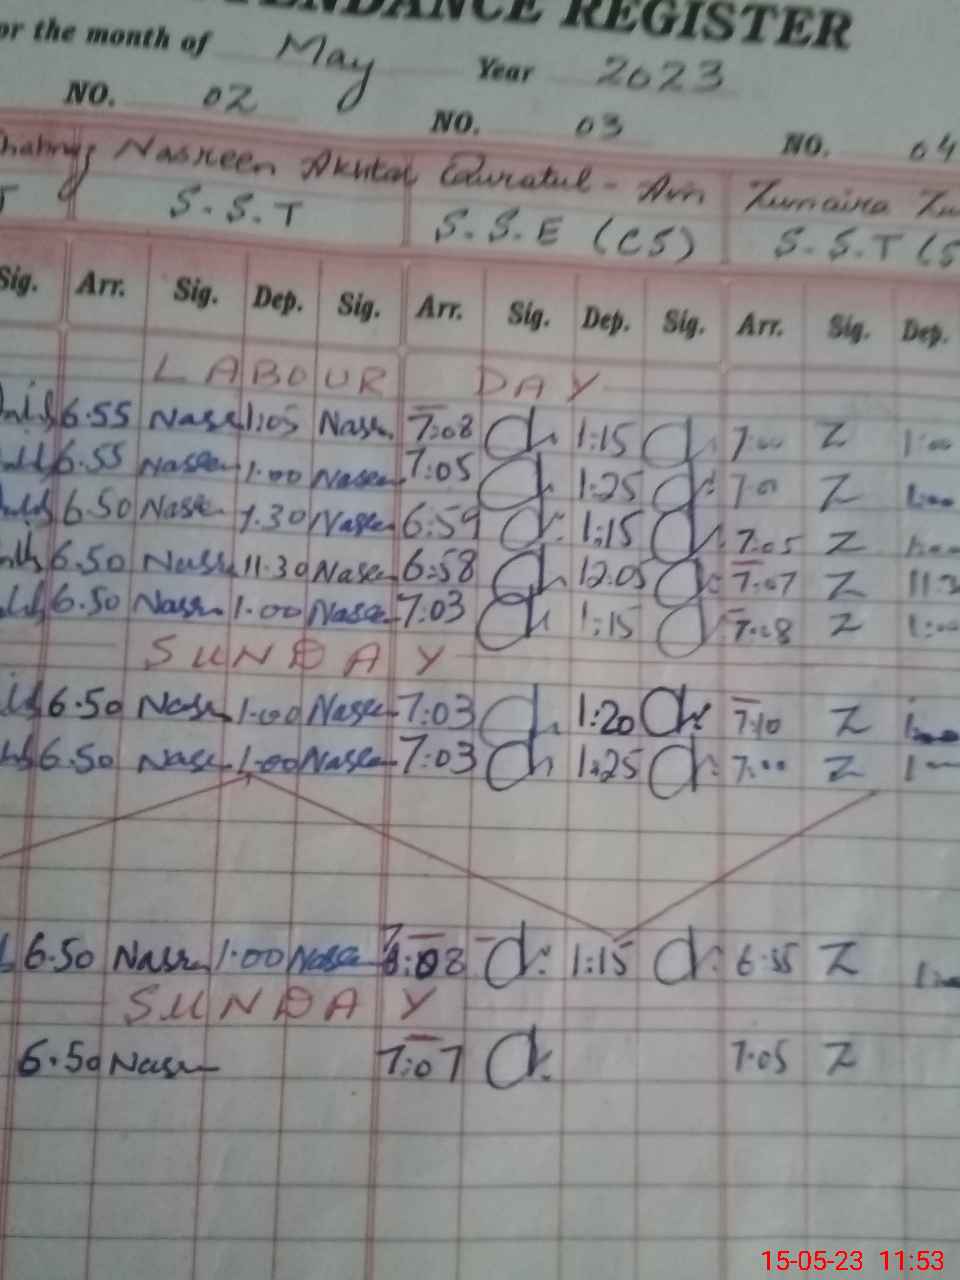 ENDANCE REGISTER
or the month of May Year 2023
NO. 02 NO. 03 NO. 04
Nasreen Akhtar Qurratul-Ain Zunaira Zu
S.S.T S.S.E (CS) S.S.T (S
Sig. Arr. Sig. Dep. Sig. Arr. Sig. Dep. Sig. Arr. Sig. Dep.
LABOUR DAY
6.55 Nasr 1:05 Nasr 7:08 1:15 7:00 Z 1:00
6.55 Nasre 1.00 Nasre 7:05 1:25 7:00 Z 1:00
6.50 Nasr 1.30 Nasre 6:59 1:15 7:05 Z
6.50 Nasr 11.30 Nasre 6:58 12:05 7:07 Z 11:3
6.50 Nasr 1.00 Nasre 7:03 1:15 7:08 Z 1:00
SUNDAY
6.50 Nasr 1.00 Nasre 7:03 1:20 7:10 Z
6.50 Nasr 1.00 Nasre 7:03 1:25 7:00 Z
6.50 Nasr 1.00 Nasre :08 1:15 6:55 Z
SUNDAY
6.50 Nasr 7:07 7:05 Z
15-05-23 11:53